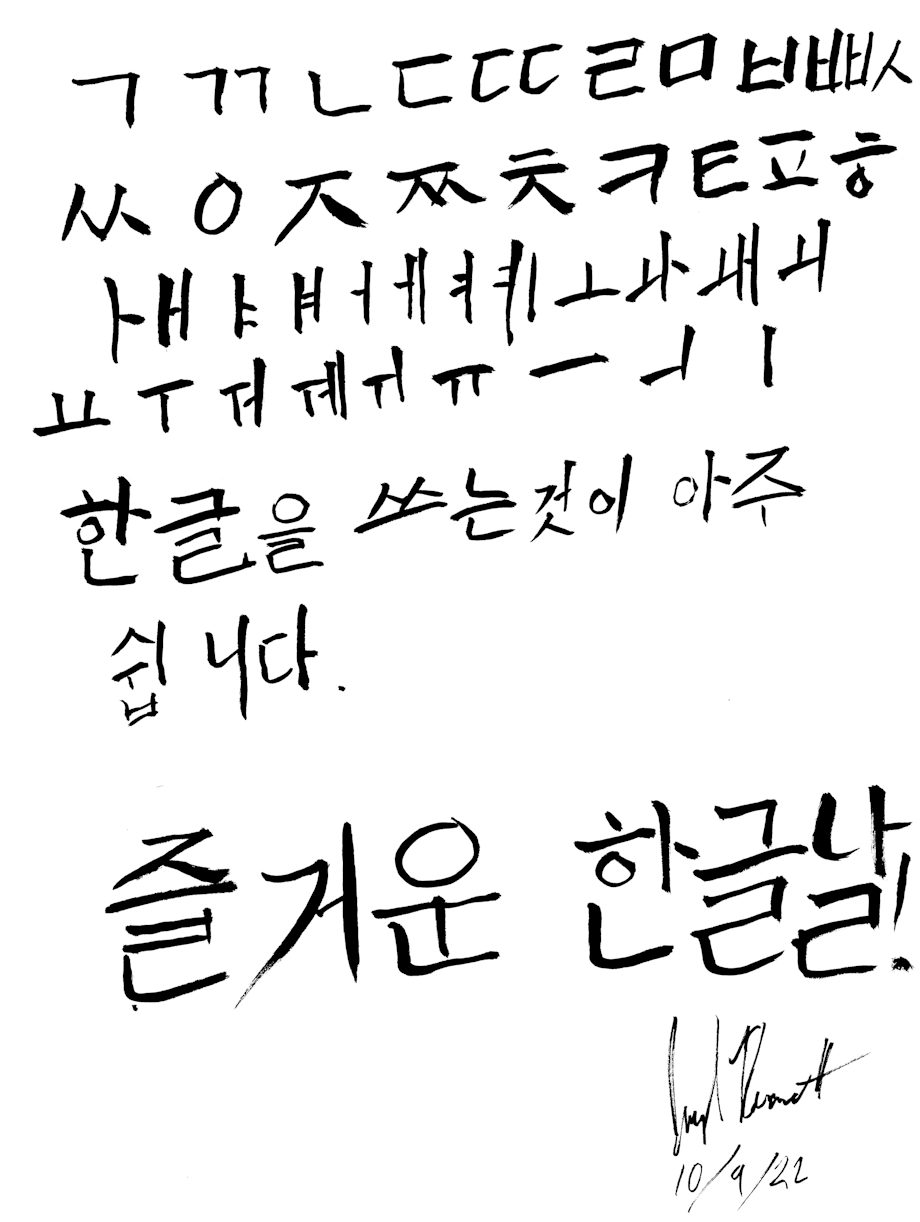 ㄱ ㄲ ㄴ ㄷ ㄸ ㄹ ㅁ ㅂ ㅃ ㅅ
ㅆ ㅇ ㅈ ㅉ ㅊ ㅋ ㅌ ㅍ ㅎ
ㅏ ㅐ ㅑ ㅒ ㅓ ㅔ ㅕ ㅖ ㅗ ㅘ ㅙ ㅚ
ㅛ ㅜ ㅝ ㅞ ㅟ ㅠ ㅡ ㅢ ㅣ
한글을 쓰는것이 아주
쉽니다.
즐거운 한글날!
10/9/22